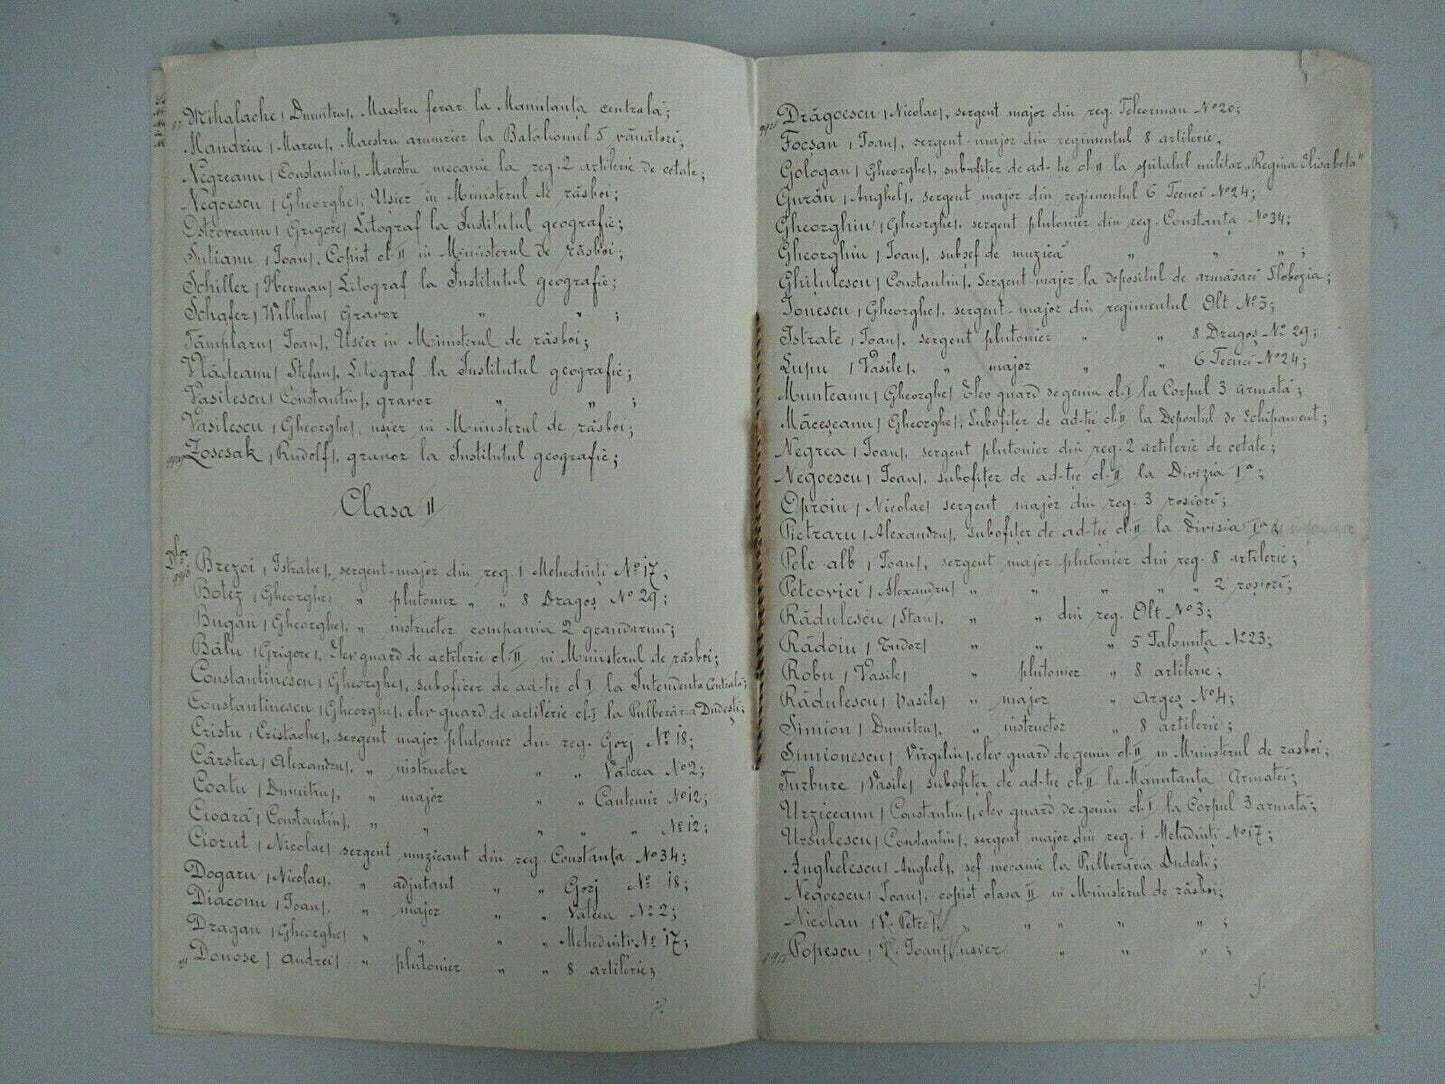 Mihalache (Dumitru), Maestru ferar la Manutanța centrală;
Mandriu (Marcu), Maestru armurier la Batalionul 5 vânători;
Negreanu (Constantin), Maestru mecanic la reg. 2 artilerie de cetate;
Negoescu (Gheorghe), Usier în Ministerul de răsboi;
Ostroveanu (Grigore) Litograf la Institutul geografic;
Suțianu (Ioan), Copist cl. II în Ministerul de răsboi;
Schiller (Herman) Litograf la Institutul geografic;
Schafer (Wilhelm) Gravor " " ;
Tâmplaru (Ioan), Usier în Ministerul de răsboi;
Vlădeanu (Stefan), Litograf la Institutul geografic;
Vasilescu (Constantin), gravor " " ;
Vasilescu (Gheorghe), usier în Ministerul de răsboi;
Zoscsak (Rudolf), gravor la Institutul geografic;
Clasa II
Brezoi (Istratie), sergent-major din reg. 1 Mehedinți No 17;
Botez (Gheorghe) " plutonier " " 8 Dragoș No 29;
Bugan (Gheorghe), " instructor compania 2 geandarmi;
Bălu (Grigore), Elev guard de artilerie cl. II în Ministerul de răsboi;
Constantinescu (Gheorghe), suboficer de ad-tie cl. I la Intendența Centrală;
Constantinescu (Gheorghe), elev guard de artilerie cl. I la Pulberăria Dudești;
Cristu (Cristache), sergent major plutonier din reg. Gorj No 18;
Cârstea (Alexandru), " instructor " " Vâlcea No 2;
Coatu (Dumitru), " major " " Cantemir No 12;
Cioară (Constantin), " " " " " No 12;
Ciorut (Nicolae) sergent muzicant din reg. Constanța No 34;
Dogaru (Nicolae), " adjutant " " Gorj No 18;
Diaconu (Ioan), " major " " Valcea No 2;
Dragan (Gheorghe) " " " " Mehedinți No 17;
Donose (Andrei) " plutonier " " 8 artilerie;
Drăgoescu (Nicolae), sergent major din reg. Teleorman No 20;
Focșan (Ioan), sergent-major din regimentul 8 artilerie;
Gologan (Gheorghe), subofițer de ad-tie cl. II la spitalul militar „Regina Elisabeta"
Gurău (Anghel), sergent major din regimentul 6 Tecuci No 24;
Gheorghiu (Gheorghe), sergent plutonier din reg. Constanța No 34;
Gheorghiu (Ioan), subșef de muzică " " " ;
Ghițulescu (Constantin), Sergent-major la depositul de armăsari Slobozia;
Ionescu (Gheorghe), sergent-major din regimentul Olt No 3;
Istrate (Ioan), sergent plutonier " " 8 Dragoș No 29;
Lupu (Vasile), " major " " 6 Tecuci No 24;
Munteanu (Gheorghe) Elev guard de geniu cl. I la Corpul 3 armată;
Măceșeanu (Gheorghe), Subofițer de ad-tie cl. II la Depositul de Echipament;
Negrea (Ioan), sergent plutonier din reg. 2 artilerie de cetate;
Negoescu (Ioan), subofițer de ad-tie cl. II la Divizia Ia;
Oproiu (Nicolae) sergent major din reg. 3 roșiori;
Pietraru (Alexandru), Subofițer de ad-tie cl. II la Divisia Ia
Pele alb (Ioan), sergent major plutonier din reg. 8 artilerie;
Petcovici (Alexandru) " " " " " 2 roșiori;
Rădulescu (Stan), " " din reg. Olt No 3;
Rădoiu (Tudor) " " " 5 Ialomița No 23;
Robu (Vasile) " plutonier " 8 artilerie;
Rădulescu (Vasile) " major " Argeș No 4;
Simion (Dumitru), " instructor " 8 artilerie;
Simionescu (Virgiliu), elev guard de geniu cl. II în Ministerul de rasboi;
Turbure (Vasile) subofițer de ad-tie cl. II la Manutanța Armatei;
Urziceanu (Constantin), elev guard de geniu cl. I la Corpul 3 armată;
Ursulescu (Constantin), sergent major din reg. 1 Mehedinți No 17;
Anghelescu (Anghel), șef mecanic la Pulberăria Dudesti;
Negoescu (Ioan), copist clasa II în Ministerul de răsboi;
Nicolau (V. Petre) " " " " " ;
Popescu (V. Ioan) usier " " " ;